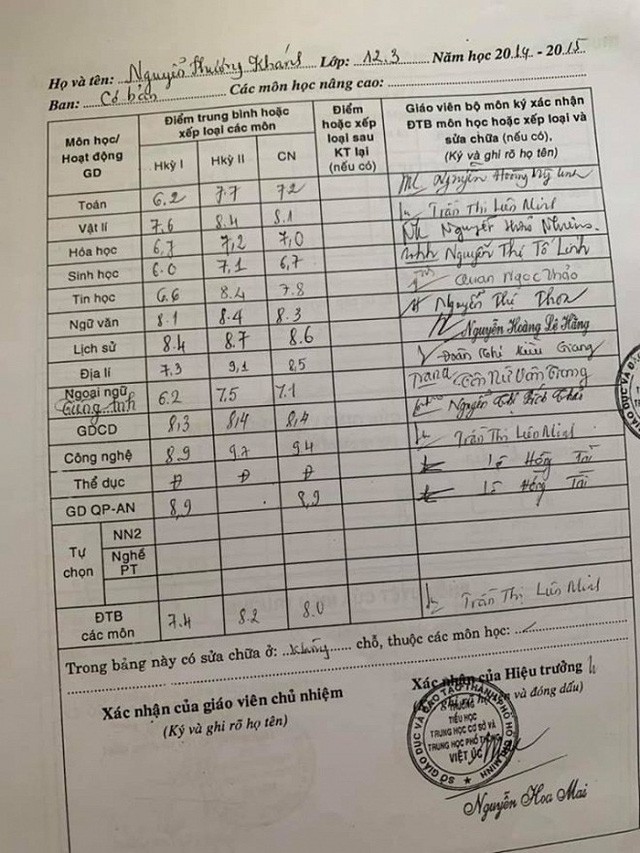 Họ và tên: Nguyễn Phương Khánh Lớp: 12.3 Năm học 2014 - 2015
Ban: Cơ bản Các môn học nâng cao:
Môn học/ Hoạt động GD | Điểm trung bình hoặc xếp loại các môn | Điểm hoặc xếp loại sau KT lại (nếu có) | Giáo viên bộ môn ký xác nhận ĐTB môn học hoặc xếp loại và sửa chữa (nếu có). (Ký và ghi rõ họ tên)
Hkỳ I | Hkỳ II | CN
Toán 6.2 7.7 7.2 Nguyễn Hoàng Mỹ Linh
Vật lí 7.6 8.4 8.1 Trần Thị Liên Minh
Hóa học 6.7 7,2 7,0 Nguyễn
Sinh học 6.0 7,1 6,7 Nguyễn Thị Tố Linh
Tin học 6.6 8.4 7.8 Quan Ngọc Thảo
Ngữ văn 8.1 8.4 8.3 Nguyễn Thị Thoa
Lịch sử 8.4 8.7 8.6 Nguyễn Hoàng Lệ Hằng
Địa lí 7.3 9,1 8,5 Đoàn Thị Kiều Giang
Ngoại ngữ 6.2 7.5 7.1 Trang Tôn Nữ Vân Trang
GDCD 8,3 8,4 8,4 Nguyễn Thị Bích Thái
Công nghệ 8.9 9.7 9.4 Trần Thị Liên Minh
Thể dục Đ Đ Đ Lê Hồng Tài
GD QP-AN 8,9 8,9 Lê Hồng Tài
Tự chọn
NN2
Nghề PT
ĐTB các môn 7.4 8.2 8.0 Trần Thị Liên Minh
Trong bảng này có sửa chữa ở: không chỗ, thuộc các môn học:
Xác nhận của giáo viên chủ nhiệm
(Ký và ghi rõ họ tên)
Xác nhận của Hiệu trưởng
(Ký, ghi rõ họ tên và đóng dấu)
SỞ GIÁO DỤC VÀ ĐÀO TẠO THÀNH PHỐ HỒ CHÍ MINH
TRƯỜNG
TIỂU HỌC
TRUNG HỌC CƠ SỞ VÀ
TRUNG HỌC PHỔ THÔNG
VIỆT ÚC
Nguyễn Hoa Mai